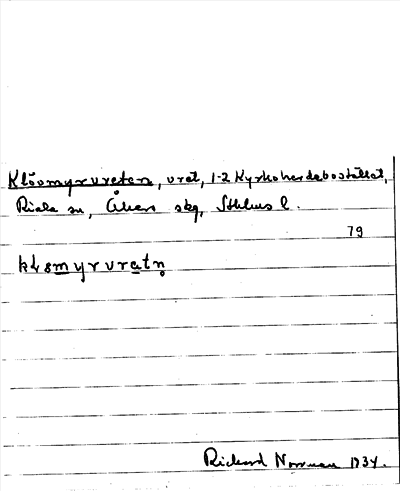 Klövmyrvreten, vret, 1-2 Kyrkoherdebostället,
Riala sn, Åkers skg, Sthlms l.
79
Richard Norrman 1934.